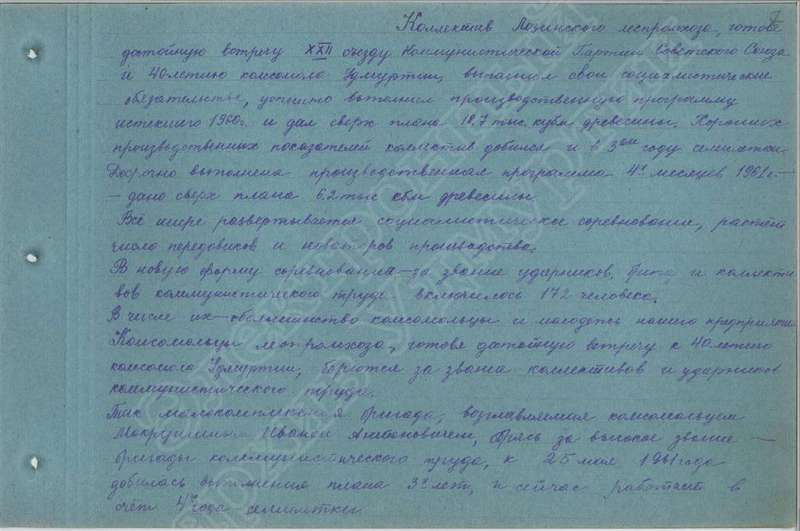 Коллектив Лозинского леспромхоза, готовя
достойную встречу XXII съезду Коммунистической Партии Советского Союза
и 40летию комсомола Удмуртии, выполняя свои социалистические
обязательства, успешно выполнил производственную программу
истекшего 1960г. и дал сверх плана 18,7 тыс. кубм древесины. Хороших
производственных показателей коллектив добился и в 3ем году семилетки.
Досрочно выполнена производственная программа 4х месяцев 1961г. —
— дано сверх плана 6,2 тыс кбм древесины.
Всё шире развертывается социалистическое соревнование, растет
число передовиков и новаторов производства.
В новую форму соревнования — за звание ударников, бриг, и коллекти
вов коммунистического труда включилось 172 человека.
В числе их — большинство комсомольцы и молодежь нашего предприятия
Комсомольцы леспромхоза, готовя достойную встречу к 40летию
комсомола Удмуртии, борются за звания коллективов и ударников
коммунистического труда.
Так малокомплексная бригада, возглавляемая комсомольцем
Иваном, борясь за высокое звание —
бригады коммунистического труда, к 25 мая 1961года
добилась выполнения плана 3х лет, и сейчас работает в
счет 4го года семилетки.